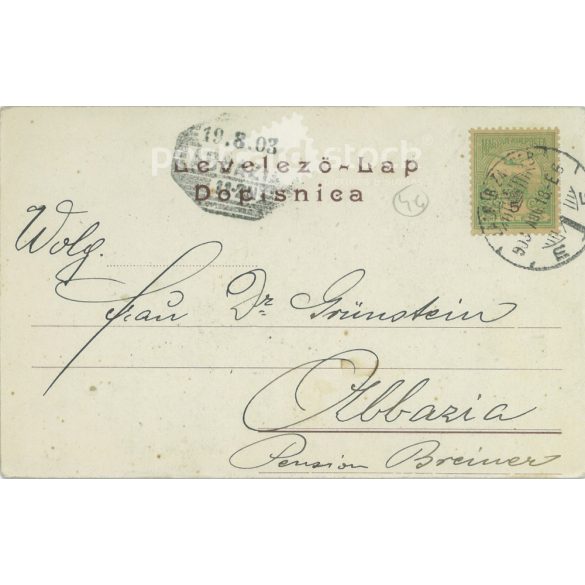 19.8.03
Levelező-Lap
Dopisnica
44
Wolg.
Frau Dr. Grünstein
Abbazia
Pension Breiner